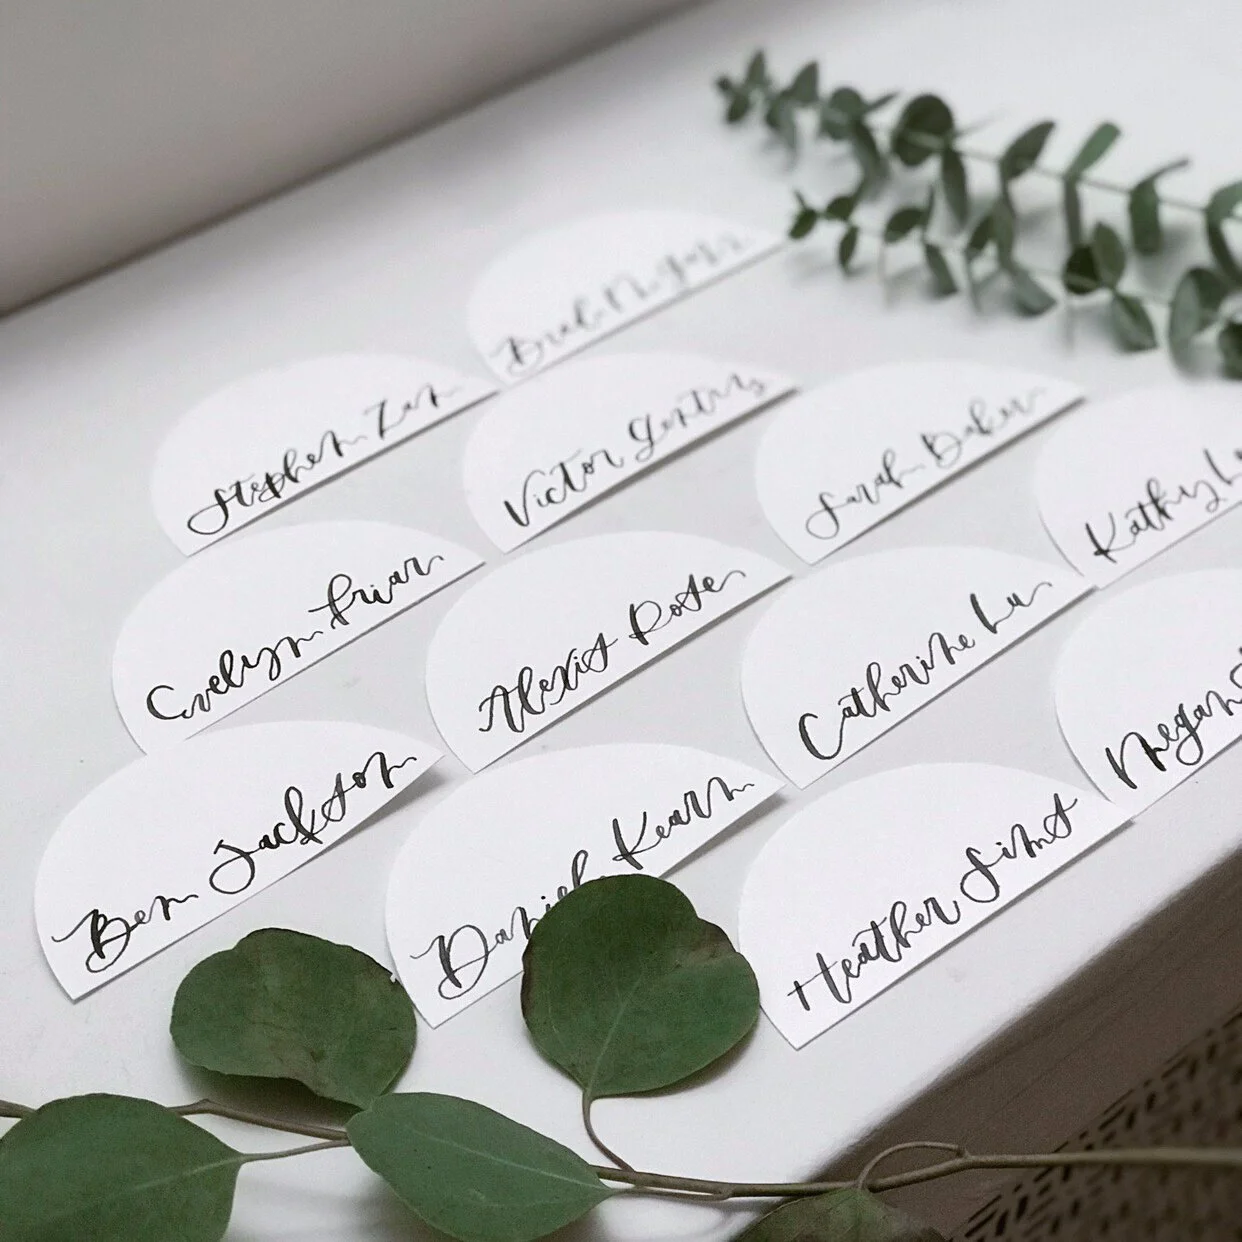 Stephen Zan
Victor
Sarah Baker
Kathy
Evelyn Friar
Alexis Rose
Catherine Lu
Megan
Ben Jackson
Daniel Kearn
Heather Sims